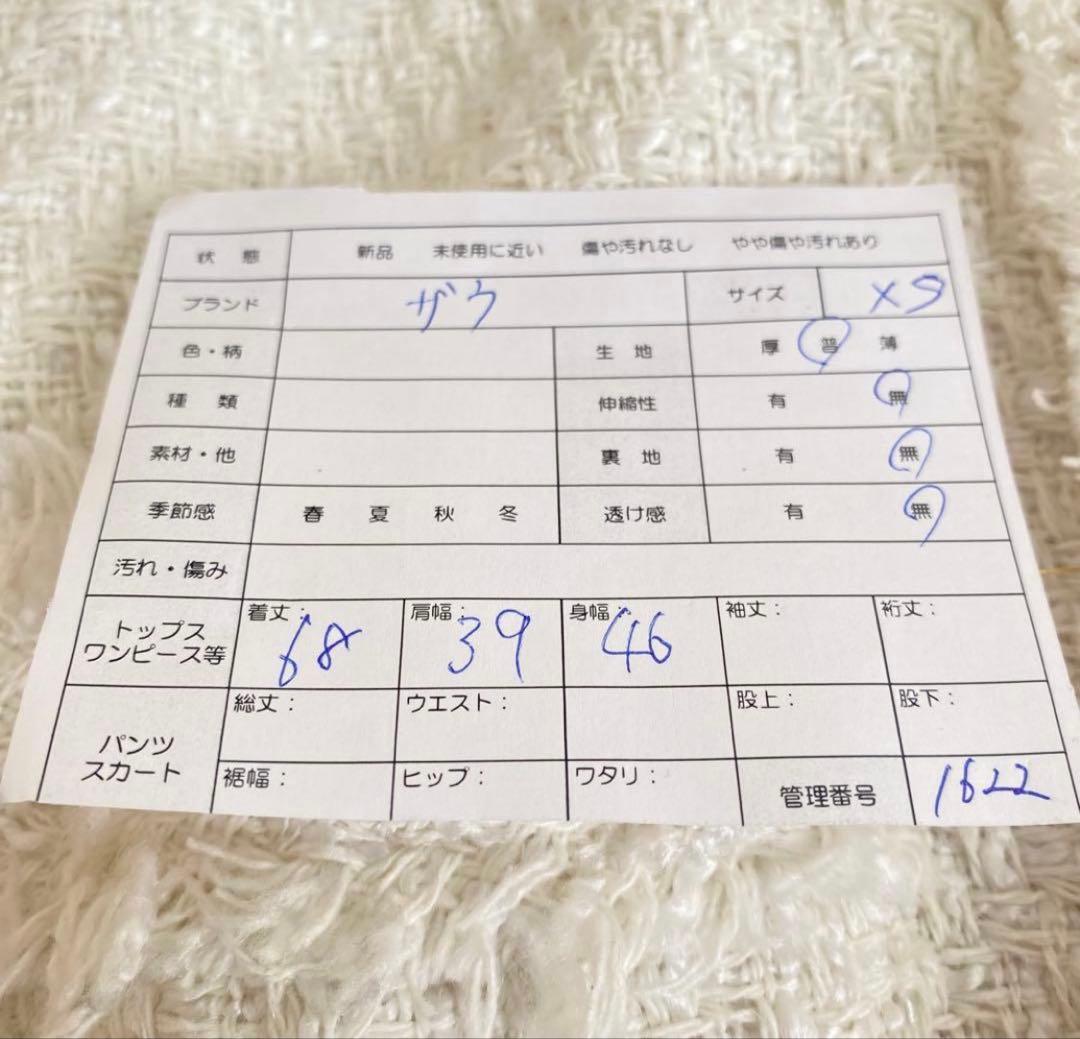 状 態 新品 未使用に近い 傷や汚れなし やや傷や汚れあり
ブランド ザウ サイズ XS
色・柄 生 地 厚 普 薄
種 類 伸縮性 有 無
素材・他 裏 地 有 無
季節感 春 夏 秋 冬 透け感 有 無
汚れ・傷み
トップス
ワンピース等
着丈: 68 肩幅: 39 身幅: 46 袖丈: 裄丈:
パンツ
スカート
総丈: ウエスト: 股上: 股下:
裾幅: ヒップ: ワタリ: 管理番号 1622